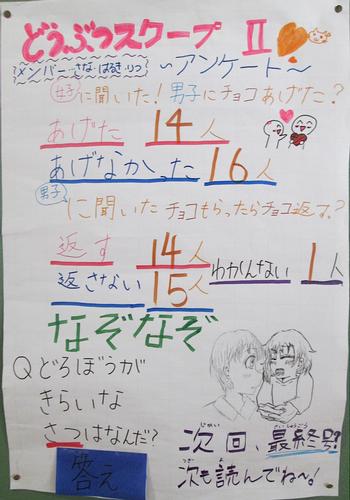 どうぶつスクープ Ⅱ
メンバー さな・はるき・りつ
～アンケート～
女子に聞いた！男子にチョコあげた？
あげた 14人
あげなかった 16人
男子に聞いた チョコもらったらチョコ返す？
返す 14人
返さない 15人
わかんない 1人
なぞなぞ
Qどろぼうが
きらいな
さつはなんだ？
答え
次回、最終号?
次も読んでね～！